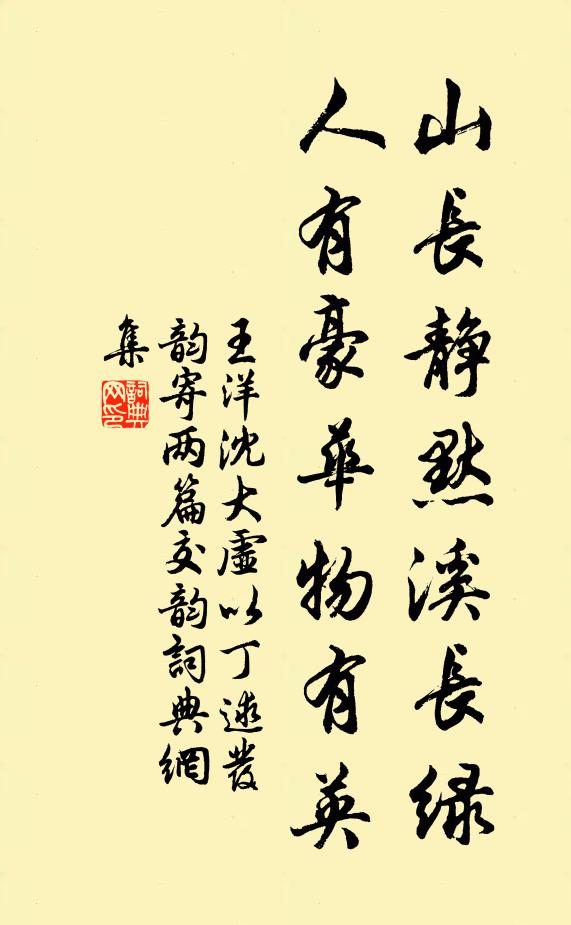 山長靜默溪長緑
人有豪華物有英
王洋沈大虛以丁遜發
韵寄两篇交韵詞典網
集
詞典網印